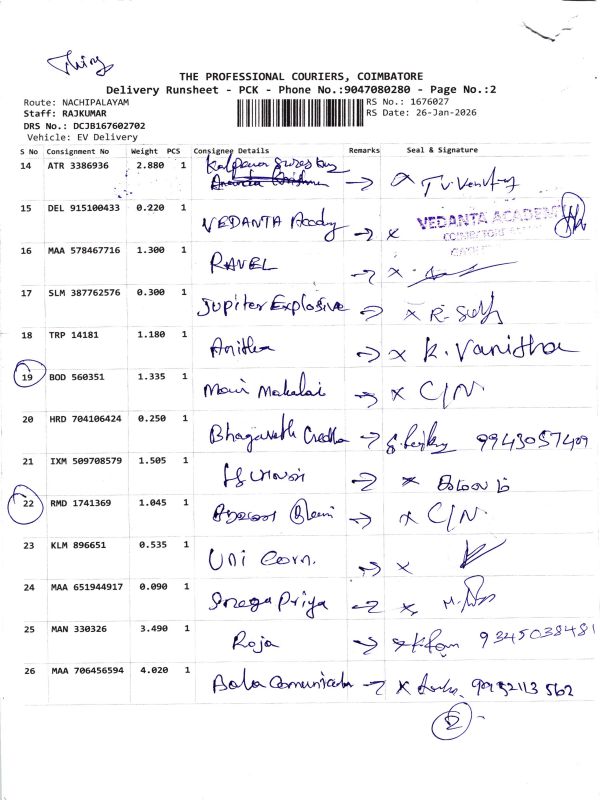 Thiru
THE PROFESSIONAL COURIERS, COIMBATORE
Delivery Runsheet - PCK - Phone No.:9047080280 - Page No.:2
Route: NACHIPALAYAM RS No.: 1676027
Staff: RAJKUMAR RS Date: 26-Jan-2026
DRS No.: DCJB167602702
Vehicle: EV Delivery
S No Consignment No Weight PCS Consignee Details Remarks Seal & Signature
14 ATR 3386936 2.880 1
15 DEL 915100433 0.220 1 VEDANTA Acady → x VEDANTA ACADEMY
COIMBATORE
16 MAA 578467716 1.300 1 RAVEL → x
17 SLM 387762576 0.300 1 Jupiter Explosive → x R-
18 TRP 14181 1.180 1 Anitha → x K. Vanitha
19 BOD 560351 1.335 1 Makalai → x C/N.
20 HRD 704106424 0.250 1 Bhagavath → 9943057409
21 IXM 509708579 1.505 1 → x
22 RMD 1741369 1.045 1 → x C/N.
23 KLM 896651 0.535 1 Uni Corn. → x
24 MAA 651944917 0.090 1 Omega Priya → x M.
25 MAN 330326 3.490 1 Roja → x 9345038481
26 MAA 706456594 4.020 1 Bala Comunicatn → x
2